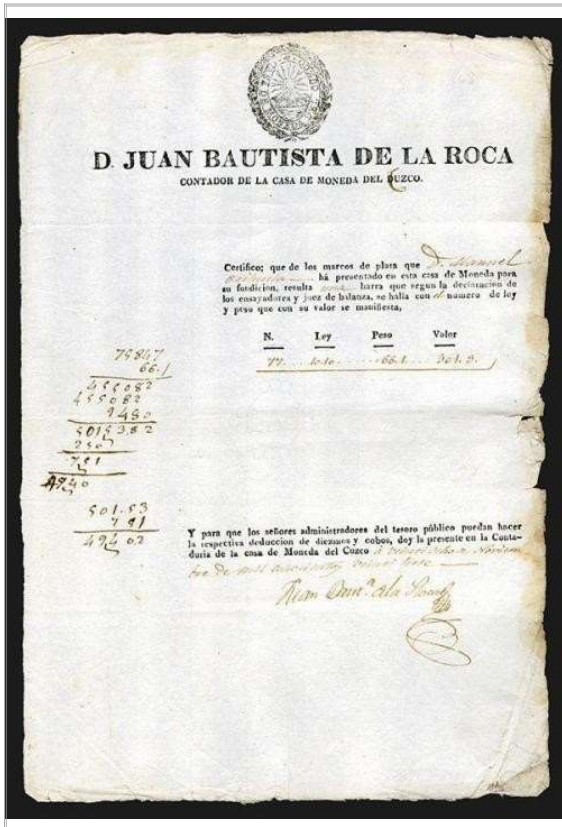 D. JUAN BAUTISTA DE LA ROCA
CONTADOR DE LA CASA DE MONEDA DEL CUZCO.
Certifico; que de los marcos de plata que D. Manuel
há presentado en esta casa de Moneda para
su fundicion, resulta una barra que segun la declaracion de
los ensayadores y juez de balanza, se halla con el numero de ley
y peso que con su valor se manifiesta,
N. Ley Peso Valor
77 66.1
75847
66.1
455082
455082
9480
5015382
250
751
4740
501.53
49402
Y para que los señores administradores del tesoro público puedan hacer
la respectiva deduccion de diezmos y cobos, doy la presente en la Conta-
duria de la casa de Moneda del Cuzco á
bre de mil
Juan